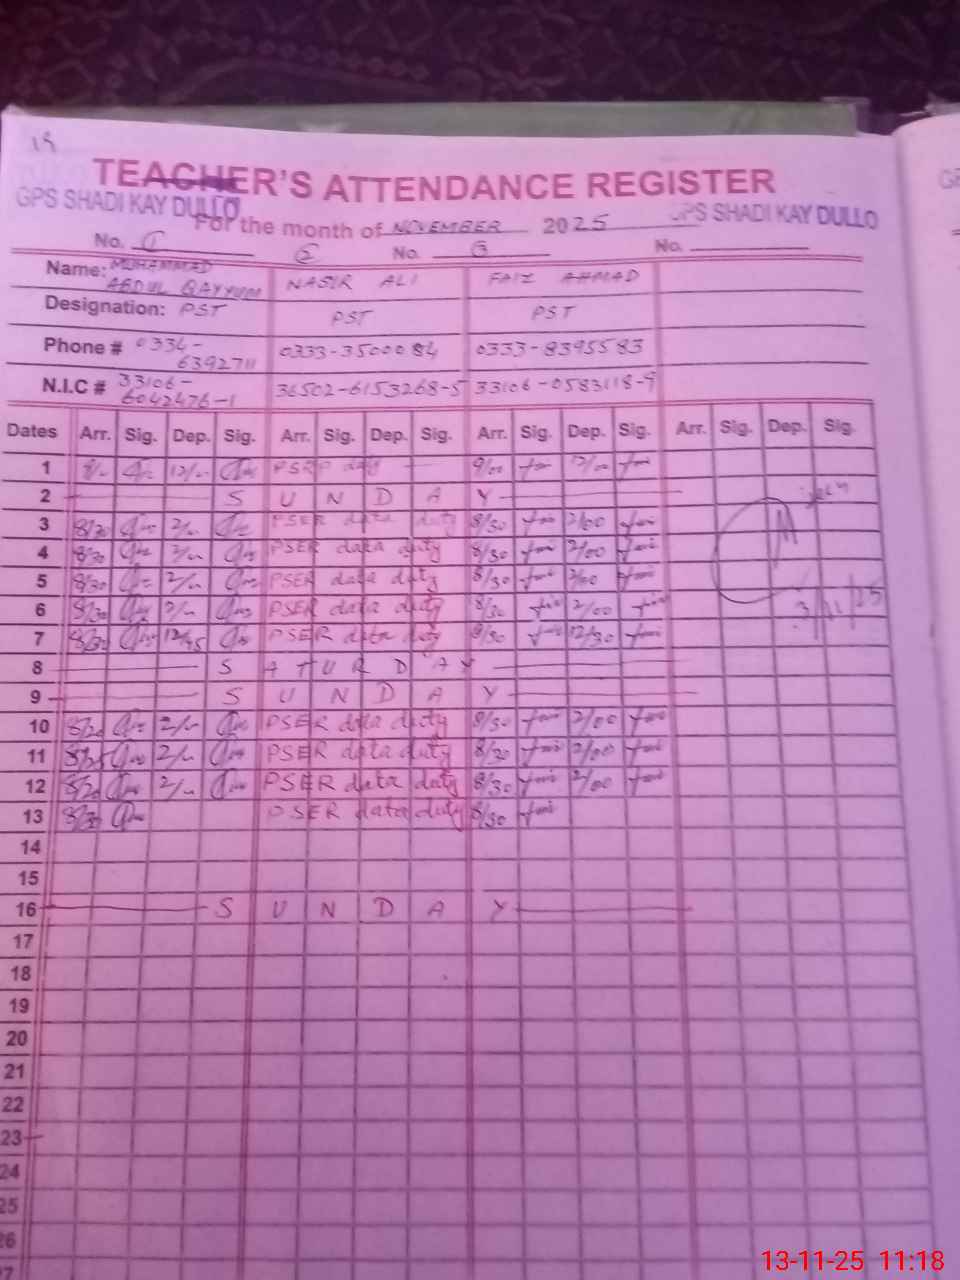 TEACHER'S ATTENDANCE REGISTER
GPS SHADI KAY DULLO
For the month of NOVEMBER 2025
GPS SHADI KAY DULLO
No. 1 2 No. 3 No.
Name: MUHAMMAD ABDUL QAYYUM NASIR ALI FAIZ AHMAD
Designation: PST PST PST
Phone # 0334-6392711 0333-3500084 0333-8395583
N.I.C # 33106-6042476-1 36502-6153268-5 33106-0583118-9
Dates Arr. Sig. Dep. Sig. Arr. Sig. Dep. Sig. Arr. Sig. Dep. Sig. Arr. Sig. Dep. Sig.
1 day 9/00 12/00
2 S U N D A Y
3 8/30 PSER data duty 8/30 2/00
4 8/30 PSER data duty 8/30 2/00
5 8/30 PSER data duty 8/30 2/00
6 8/30 PSER data duty 8/30 2/00
7 8/30 12/45 PSER data duty 8/30 12/30
8 S A T U R D A Y
9 S U N D A Y
10 PSER data duty 8/30 2/00
11 8/25 PSER data duty 8/30 2/00
12 PSER data duty 8/30 2/00
13 8/30 PSER data duty 8/30
14
15
16 S U N D A Y
17
18
19
20
21
22
23
24
25
26
27
3/11/25
13-11-25 11:18